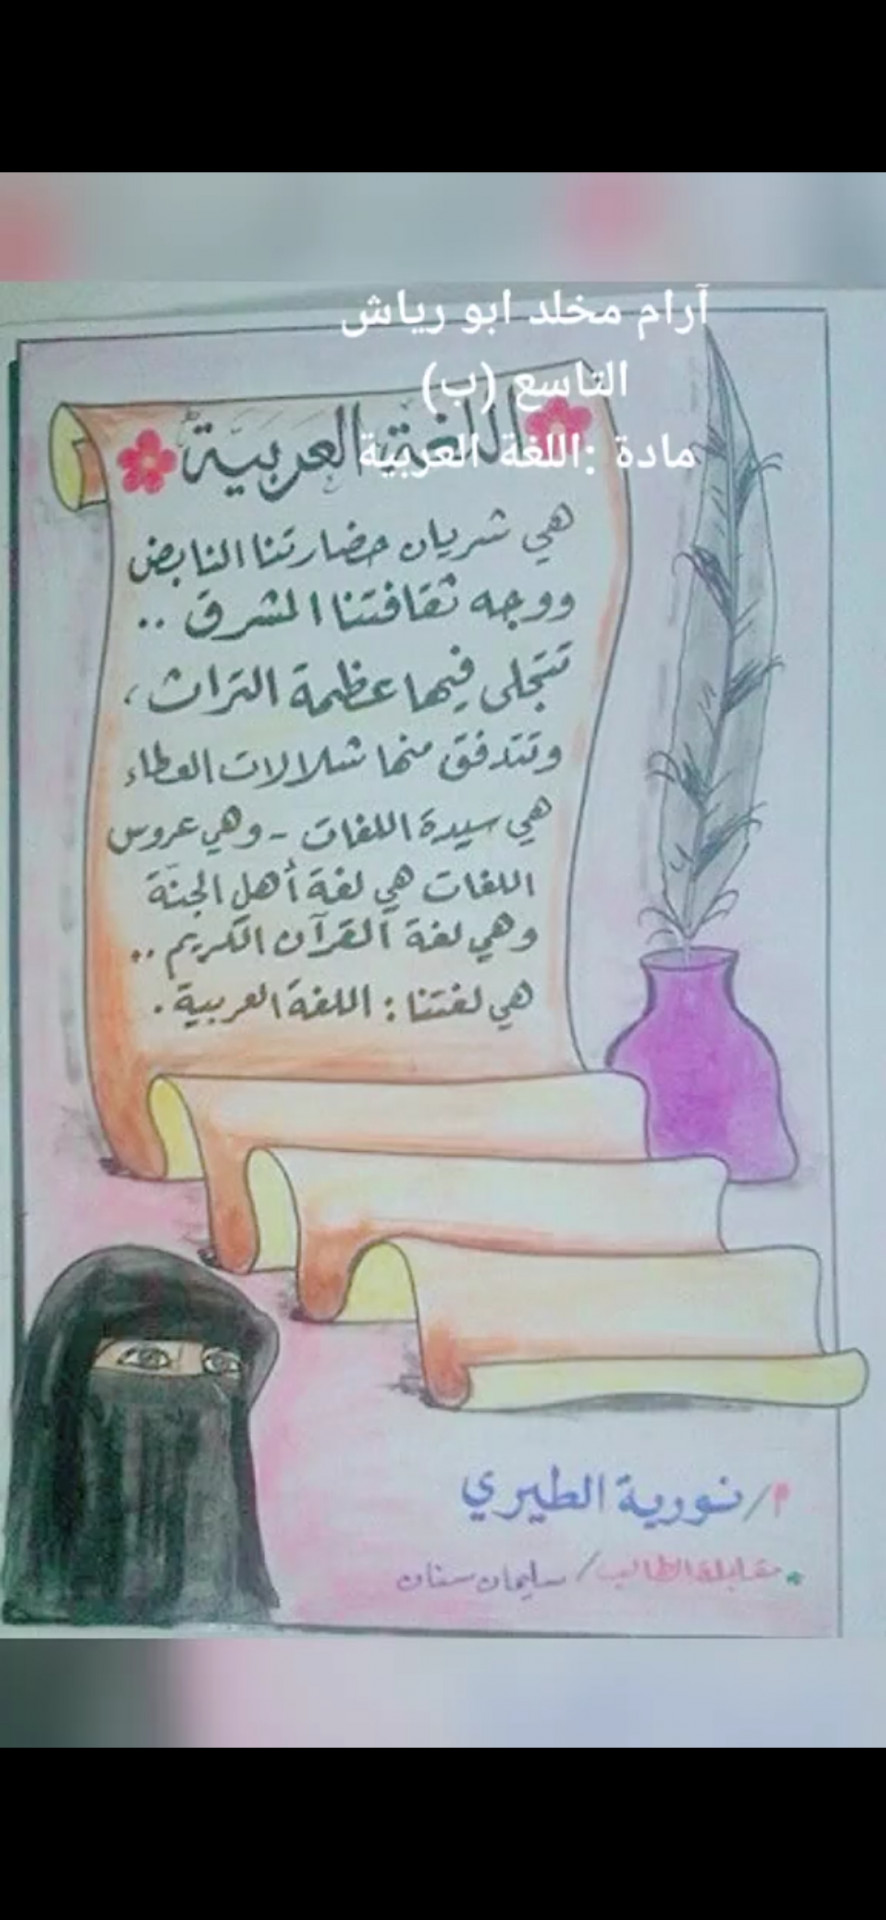 آرام مخلد ابو رياش
التاسع (ب)
مادة :اللغة العربية
اللغة العربية
هي شريان حضارتنا النابض
ووجه ثقافتنا المشرق ..
تتجلى فيها عظمة التراث ،
وتتدفق منها شلالات العطاء
هي سيدة اللغات - وهي عروس
اللغات هي لغة أهل الجنّة
وهي لغة القرآن الكريم ..
هي لغتنا : اللغة العربية .
م/ نورية الطيري
مقابلة الطالب / سليمان سنان